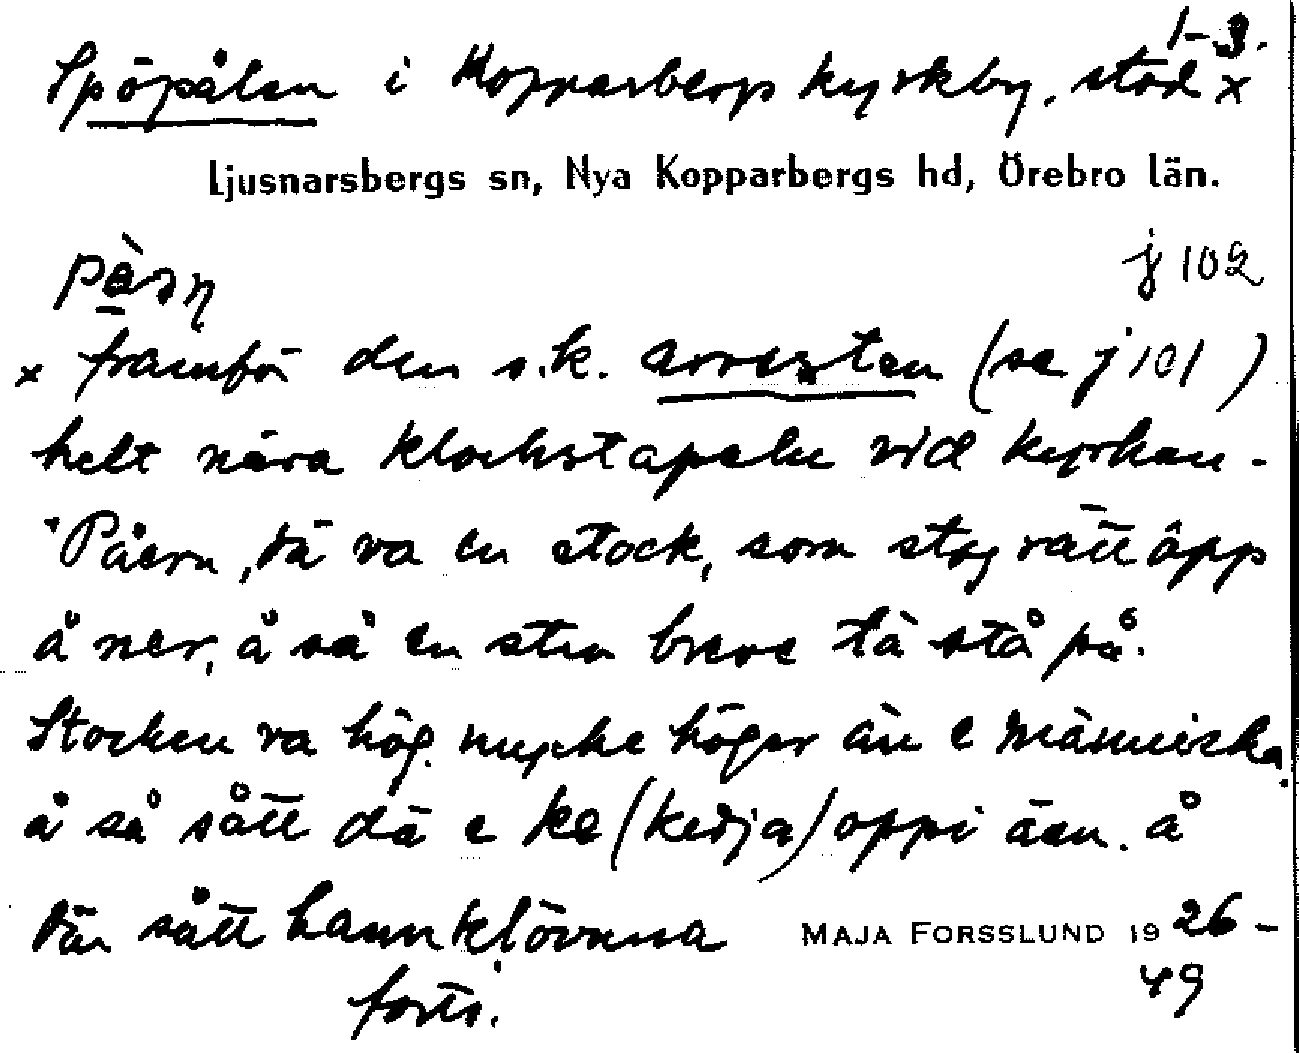 1-3.
Spöpålen i Kopparbergs kyrkby, stod x
Ljusnarsbergs sn, Nya Kopparbergs hd, Örebro län.
j 102
x framför den s.k. arresten (se j 101)
helt nära klockstapeln vid kyrkan.
"Påern, dä va en stock, som stog rätt åpp
å ner, å så en sten breve tå stå på.
Stocken va hög, mycke höger än e människa,
å så sått dä e ke (kedja) oppi äen. å
där sått hannklövuna MAJA FORSSLUND 1926-
forts. 49